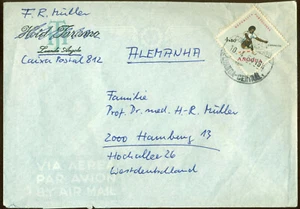 F. R. Müller
Hotel Turismo
Luanda Angola
Caixa Postal 812
ALEMANHA
ANGOLA
Familie
Prof. Dr. med. H.-R. Müller
2000 Hamburg 13
Hochallee 26
Westdeutschland
VIA AÉREA
PAR AVION
BY AIR MAIL